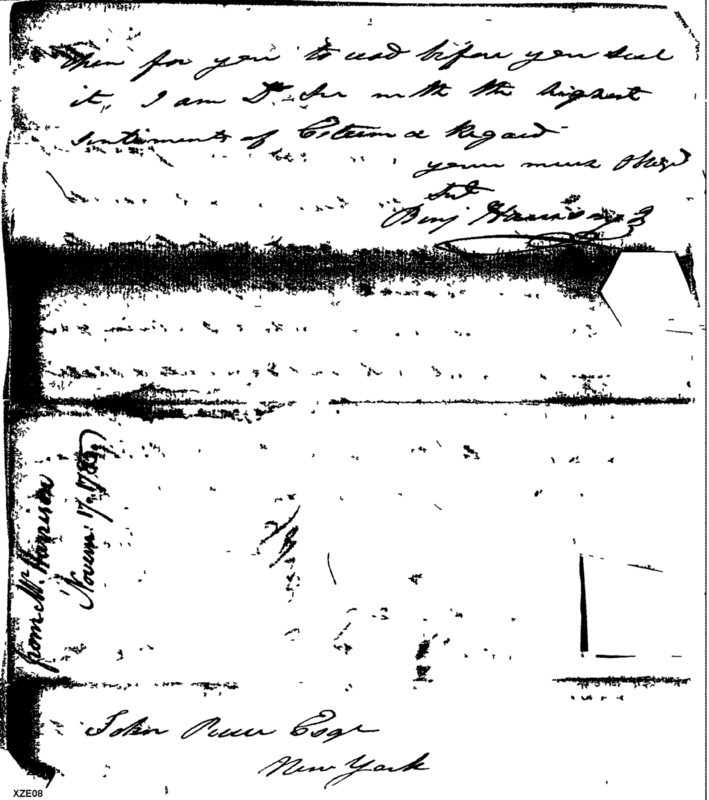 them for you to read before you seal
it, I am Dr. Sir with the highest
sentiments of Esteem & Regard
your much Obligd
Sert
Benj Harrison jr
from Mr. Harrison
Novem: 17. 1789
John Esqr
New York
XZE08